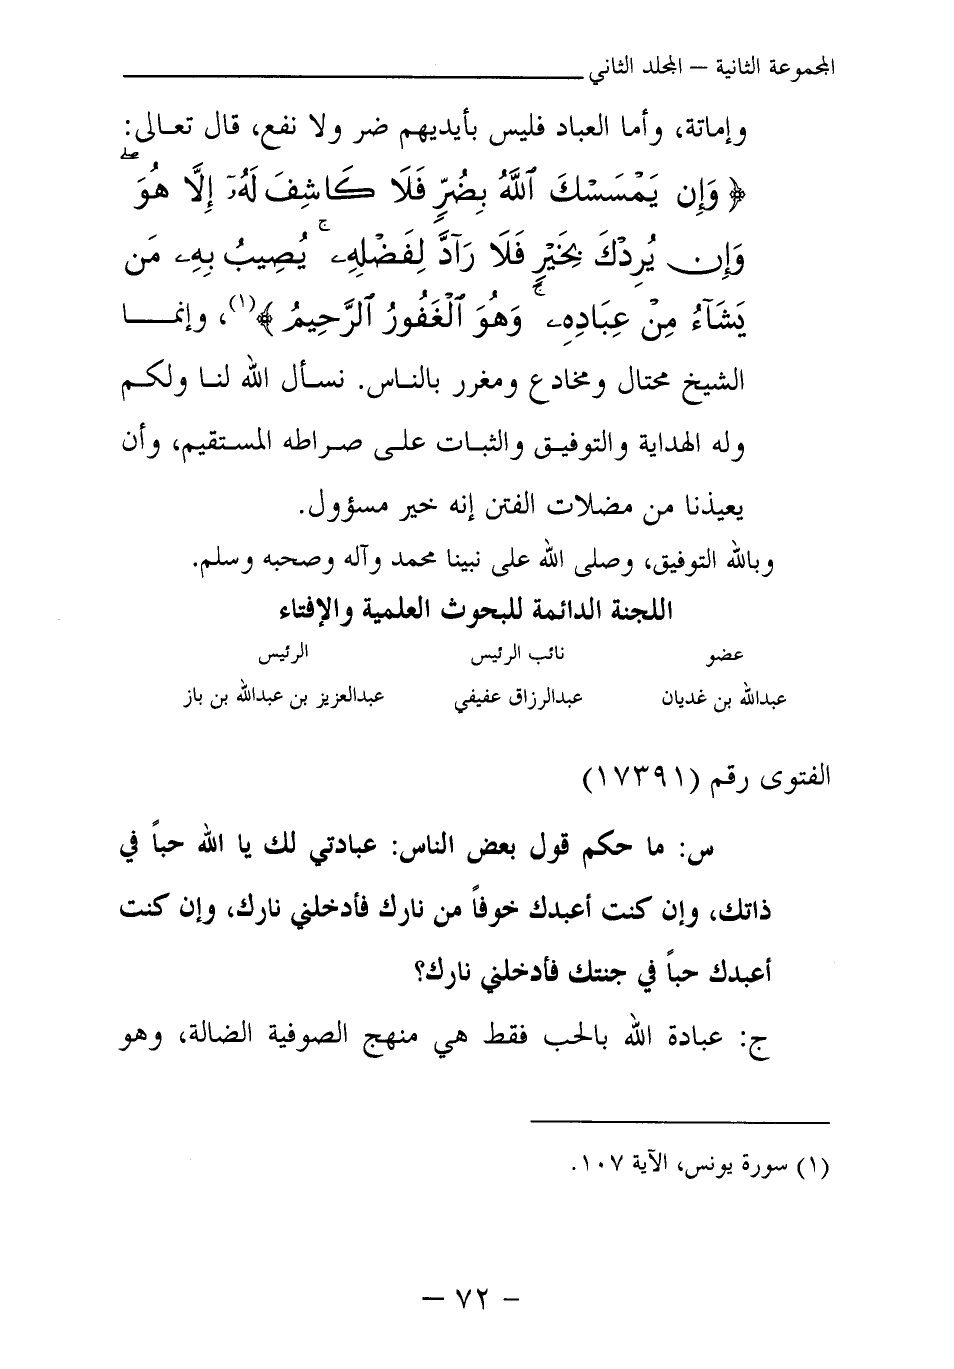 المجموعة الثانية – المجلد الثاني
وإماتة، وأما العباد فليس بأيديهم ضر ولا نفع، قال تعالى:
﴿ وَإِن يَمْسَسْكَ ٱللَّهُ بِضُرٍّ فَلَا كَاشِفَ لَهُۥٓ إِلَّا هُوَ ۖ
وَإِن يُرِدْكَ بِخَيْرٍ فَلَا رَآدَّ لِفَضْلِهِۦ ۚ يُصِيبُ بِهِۦ مَن
يَشَآءُ مِنْ عِبَادِهِۦ ۚ وَهُوَ ٱلْغَفُورُ ٱلرَّحِيمُ ﴾(١)، وإنما
الشيخ محتال ومخادع ومغرر بالناس. نسأل الله لنا ولكم
وله الهداية والتوفيق والثبات على صراطه المستقيم، وأن
يعيذنا من مضلات الفتن إنه خير مسؤول.
وبالله التوفيق، وصلى الله على نبينا محمد وآله وصحبه وسلم.
اللجنة الدائمة للبحوث العلمية والإفتاء
عضو نائب الرئيس الرئيس
عبدالله بن غديان عبدالرزاق عفيفي عبدالعزيز بن عبدالله بن باز
الفتوى رقم (١٧٣٩١)
س: ما حكم قول بعض الناس: عبادتي لك يا الله حباً في
ذاتك، وإن كنت أعبدك خوفاً من نارك فأدخلني نارك، وإن كنت
أعبدك حباً في جنتك فأدخلني نارك؟
ج: عبادة الله بالحب فقط هي منهج الصوفية الضالة، وهو
(١) سورة يونس، الآية ١٠٧.
– ٧٢ –